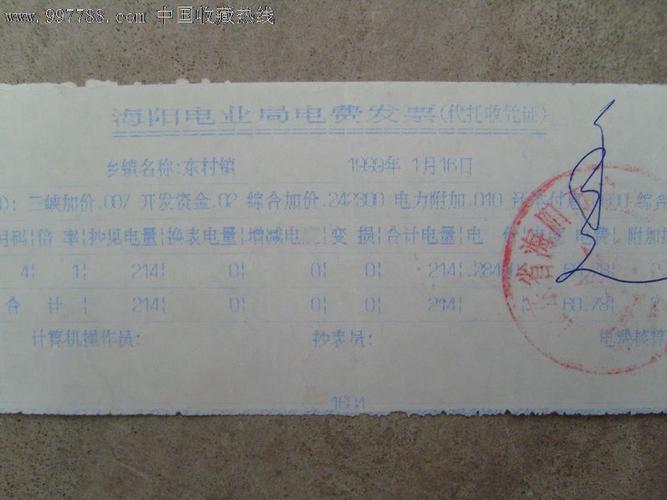 www.997788.com 中国收藏热线
海阳电业局电费发票(代托收凭证)
乡镇名称:东村镇 1999年 1月16日
: 二峡加价.007 开发资金.02 综合加价.242800 电力附加.010 综合
码|倍 率|抄见电量|换表电量|增减电 变 损|合计电量|电 价 电费|附加
4| 1| 214| 0| 0| 0| 214|.284
合 计| 214| 0| 0| 0| 214| 60.78|
计算机操作员: 抄表员: 电费核算
省海阳